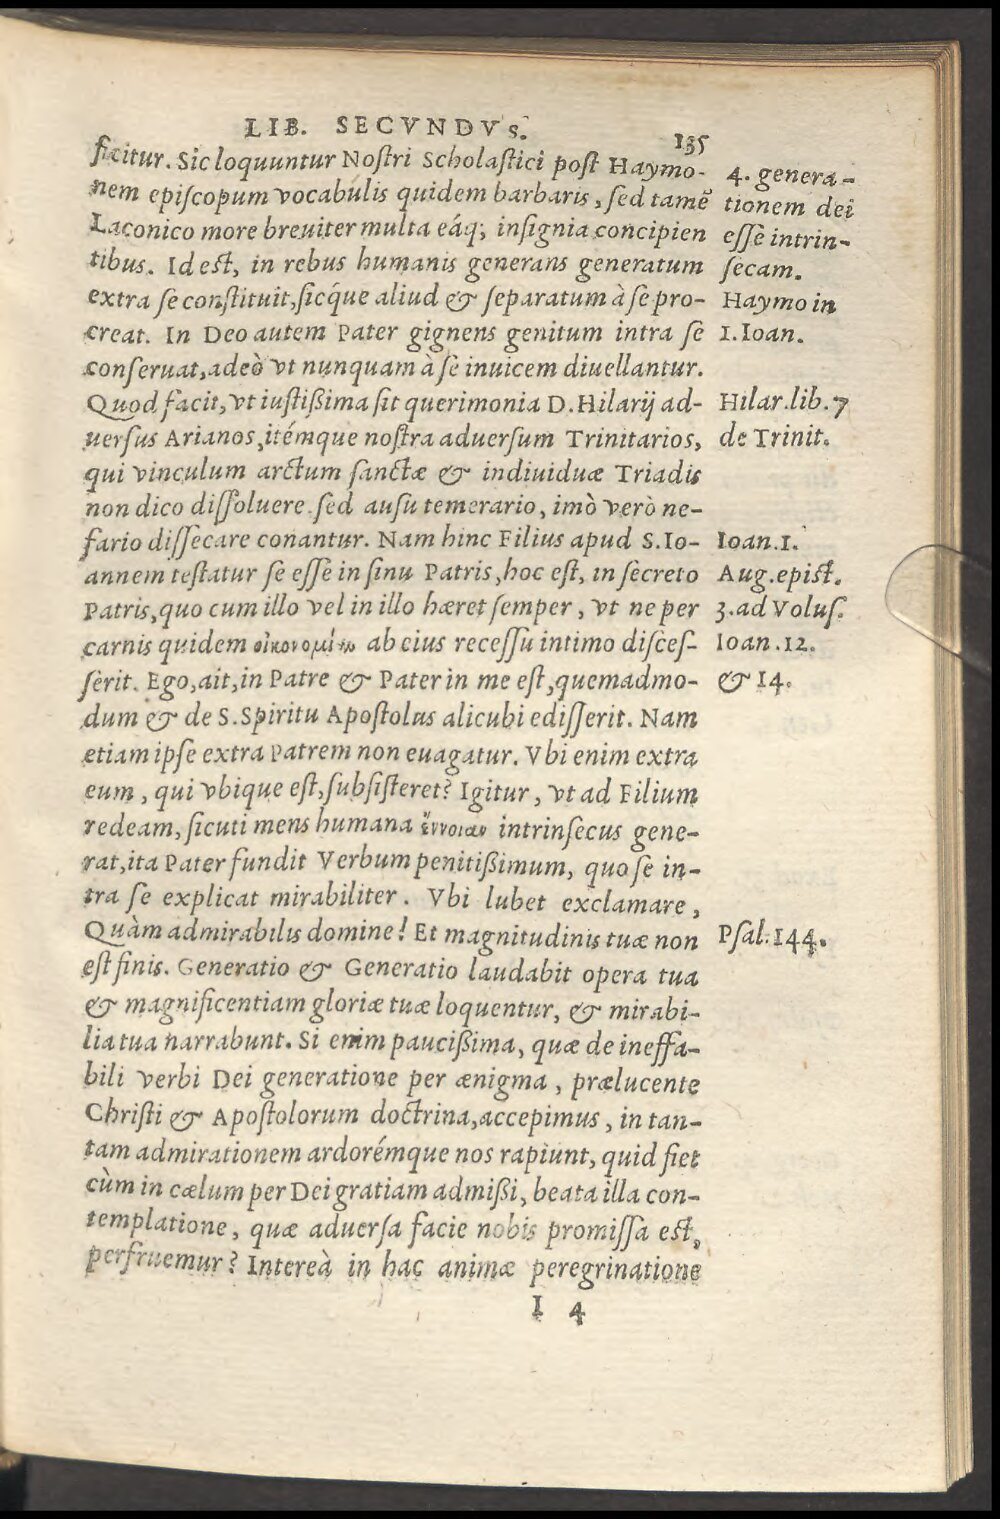 LIB. SECVNDVS.
135
ficitur. Sic loquuntur Nostri Scholastici post Haymo-
nem episcopum vocabulis quidem barbaris, sed tamē
Laconico more breuiter multa eáq; insignia concipien
tibus. Id est, in rebus humanis generans generatum
extra se constituit, sicq́ue aliud & separatum à se pro-
creat. In Deo autem Pater gignens genitum intra se
conseruat, adeò vt nunquam à se inuicem diuellantur.
Quod facit, vt iustißima sit querimonia D. Hilarij ad-
uersus Arianos, itémque nostra aduersum Trinitarios,
qui vinculum arctum sanctæ & indiuiduæ Triadis
non dico dissoluere, sed ausu temerario, imò verò ne-
fario dissecare conantur. Nam hinc Filius apud S. Io-
annem testatur se esse in sinu Patris, hoc est, in secreto
Patris, quo cum illo vel in illo hæret semper, vt ne per
carnis quidem οἰκονομίαν ab eius recessu intimo disces-
serit. Ego, ait, in Patre & Pater in me est, quemadmo-
dum & de S. Spiritu Apostolus alicubi edisserit. Nam
etiam ipse extra Patrem non euagatur. Vbi enim extra
eum, qui vbique est, subsisteret? Igitur, vt ad Filium
redeam, sicuti mens humana ἔννοιαν intrinsecus gene-
rat, ita Pater fundit Verbum penitißimum, quo se in-
tra se explicat mirabiliter. Vbi lubet exclamare,
Quàm admirabilis domine! Et magnitudinis tuæ non
est finis. Generatio & Generatio laudabit opera tua
& magnificentiam gloriæ tuæ loquentur, & mirabi-
lia tua narrabunt. Si enim paucißima, quæ de ineffa-
bili verbi Dei generatione per ænigma, prælucente
Christi & Apostolorum doctrina, accepimus, in tan-
tam admirationem ardorémque nos rapiunt, quid fiet
cùm in cælum per Dei gratiam admißi, beata illa con-
templatione, quæ aduersa facie nobis promissa est,
perfruemur? Intereà in hac animæ peregrinatione
I 4
4. genera-
tionem dei
esse intrin-
secam.
Haymo in
1. Ioan.
Hilar. lib. 7
de Trinit.
Ioan. 1.
Aug. epist.
3. ad Volus.
Ioan. 12.
& 14.
Psal. 144.